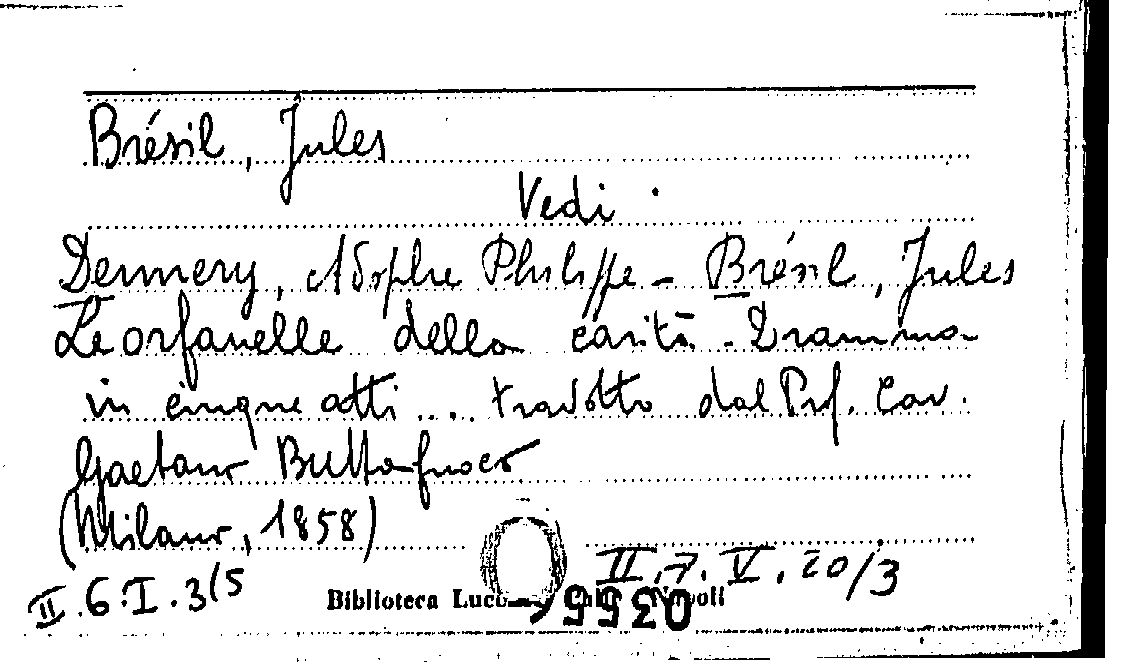 Brésil, Jules
Vedi
Dennery, Adolphe Philippe - Brésil, Jules
Le orfanelle della carità - Dramma
in cinque atti ... tradotto dal Prof. Cav.
Gaetano Buttafuoco
(Milano, 1858)
II.7.V.20/3
II.6.I.3/5
Biblioteca Napoli
0355